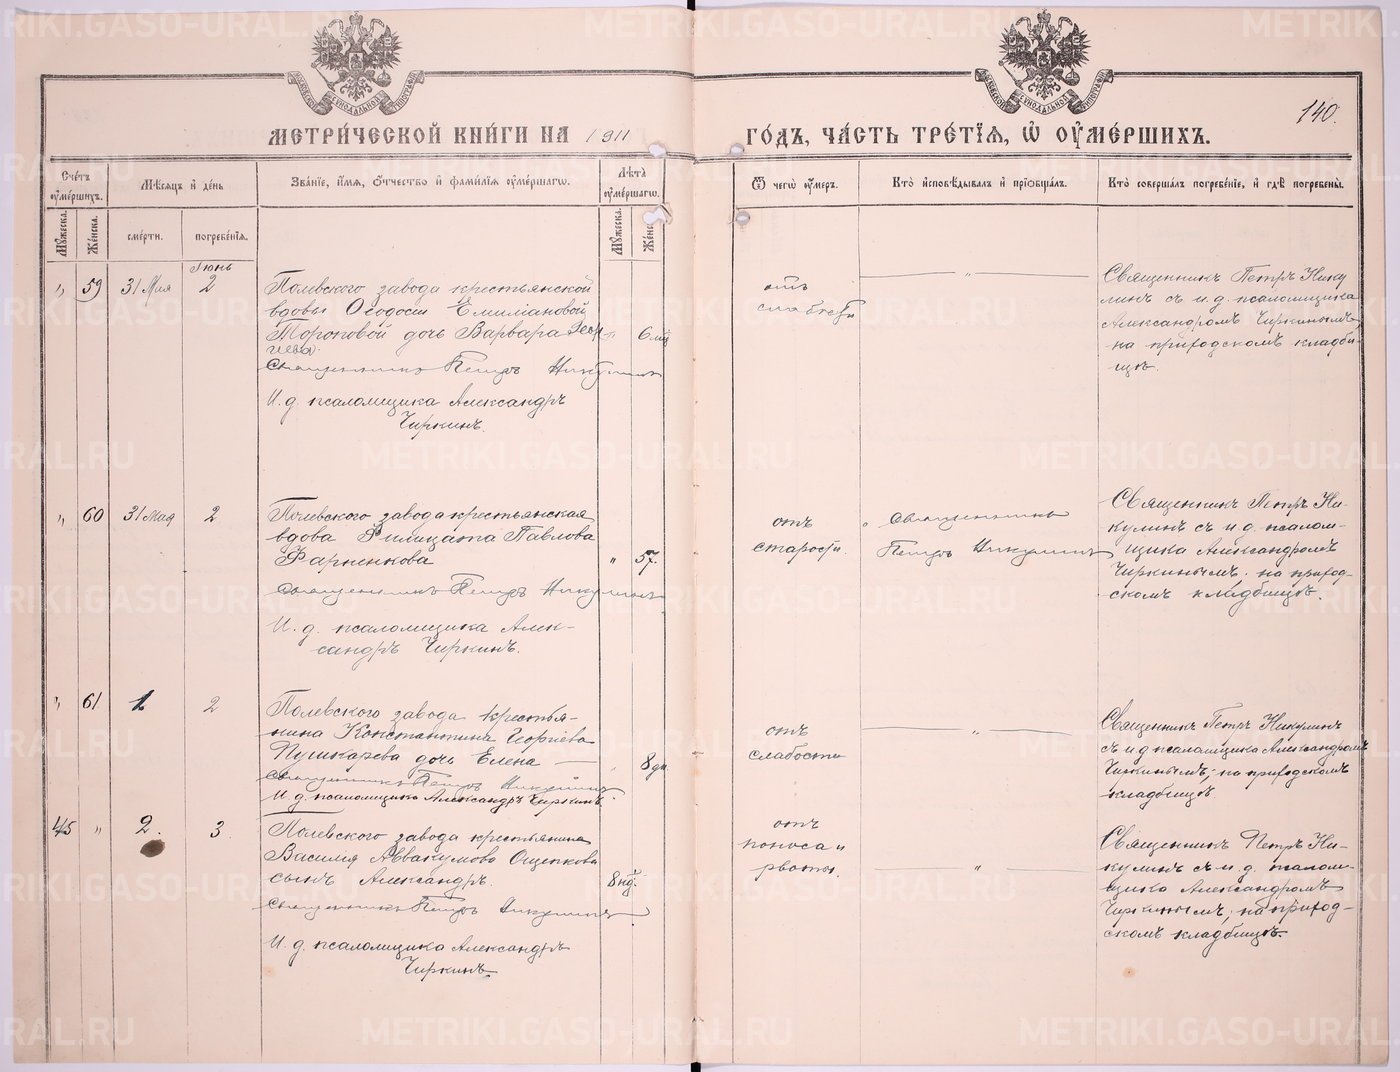 МЕТРИ́ЧЕСКОЙ КНИ́ГИ НА 1911 ГО́ДЪ, ЧА́СТЬ ТРЕ́ТІѦ, Ѡ ОУМЕ́РШИХЪ.
140.
Сче́тъ оумершихъ.
Мужеска.
Женска.
Мѣсяцъ и день
смерти.
погребенія.
Званіе, имя, отчество и фамилія оумершаго.
Лѣта оумершаго.
Мужеска.
Женс
Ѿ чегѡ оумеръ.
Кто исповѣдывалъ и пріобщалъ.
Кто совершалъ погребеніе, и гдѣ погребены.
Іюнь
" 59 31 Мая 2
Полевского завода крестьянской
вдовы Ѳеодосіи Емиліановой
Тороповой дочь Варвара Геор
гіева.
Священникъ Петръ Никулинъ
И. д. псаломщика Александръ
Чиркинъ.
" 6 мц
отъ
слабости
"
Священникъ Петръ Нику
линъ съ и. д. псаломщика
Александромъ Чиркинымъ,
на приходскомъ кладби-
щѣ.
" 60 31 Мая 2
Полевского завода крестьянская
вдова Филицата Павлова
Фарненкова
Священникъ Петръ Никулинъ
И. д. псаломщика Алек-
сандръ Чиркинъ.
" 57.
отъ
старости.
Священникъ
Петръ Никулинъ
Священникъ Петръ Ни-
кулинъ съ и. д. псалом-
щика Александромъ
Чиркинымъ, на приход-
скомъ кладбищѣ.
" 61 1 2
Полевского завода крестья-
нина Константина Георгіева
Пушкарева дочь Елена
Священникъ Петръ Никулинъ
И. д. псаломщика Александръ Чиркинъ.
" 8 дн.
отъ
слабости
"
Священникъ Петръ Никулинъ
съ и д псаломщика Александромъ
Чиркинымъ, на приходскомъ
кладбищѣ
45 " 2. 3
Полевского завода крестьянина
Василія Аввакумова Ощепкова
сынъ Александръ.
Священникъ Петръ Никулинъ
И. д. псаломщика Александръ
Чиркинъ
8 нд.
отъ
поноса и
рвоты.
"
Священникъ Петръ Ни-
кулинъ съ и. д. псалом-
щика Александромъ
Чиркинымъ, на приход-
скомъ кладбищѣ.
METRIKI.GASO-URAL.RU